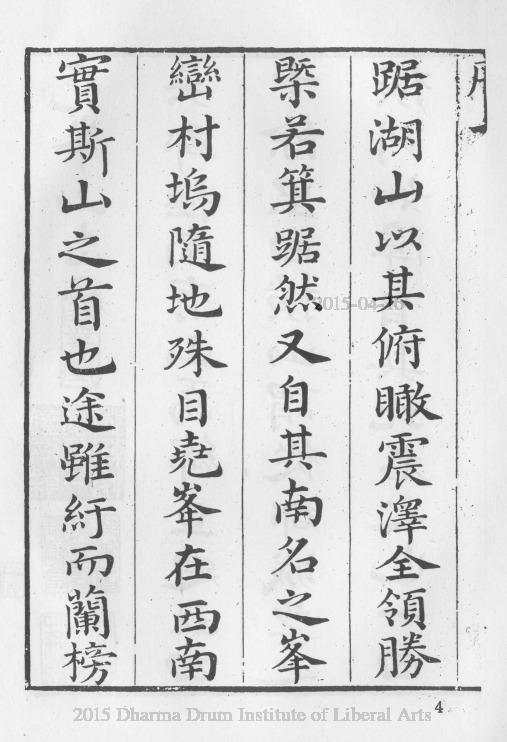 序
踞湖山以其俯瞰震澤全領勝
槩若箕踞然又自其南名之峯
巒村塢隨地殊目堯峯在西南
實斯山之首也途雖紆而蘭榜
2015-04-16
4
2015 Dharma Drum Institute of Liberal Arts